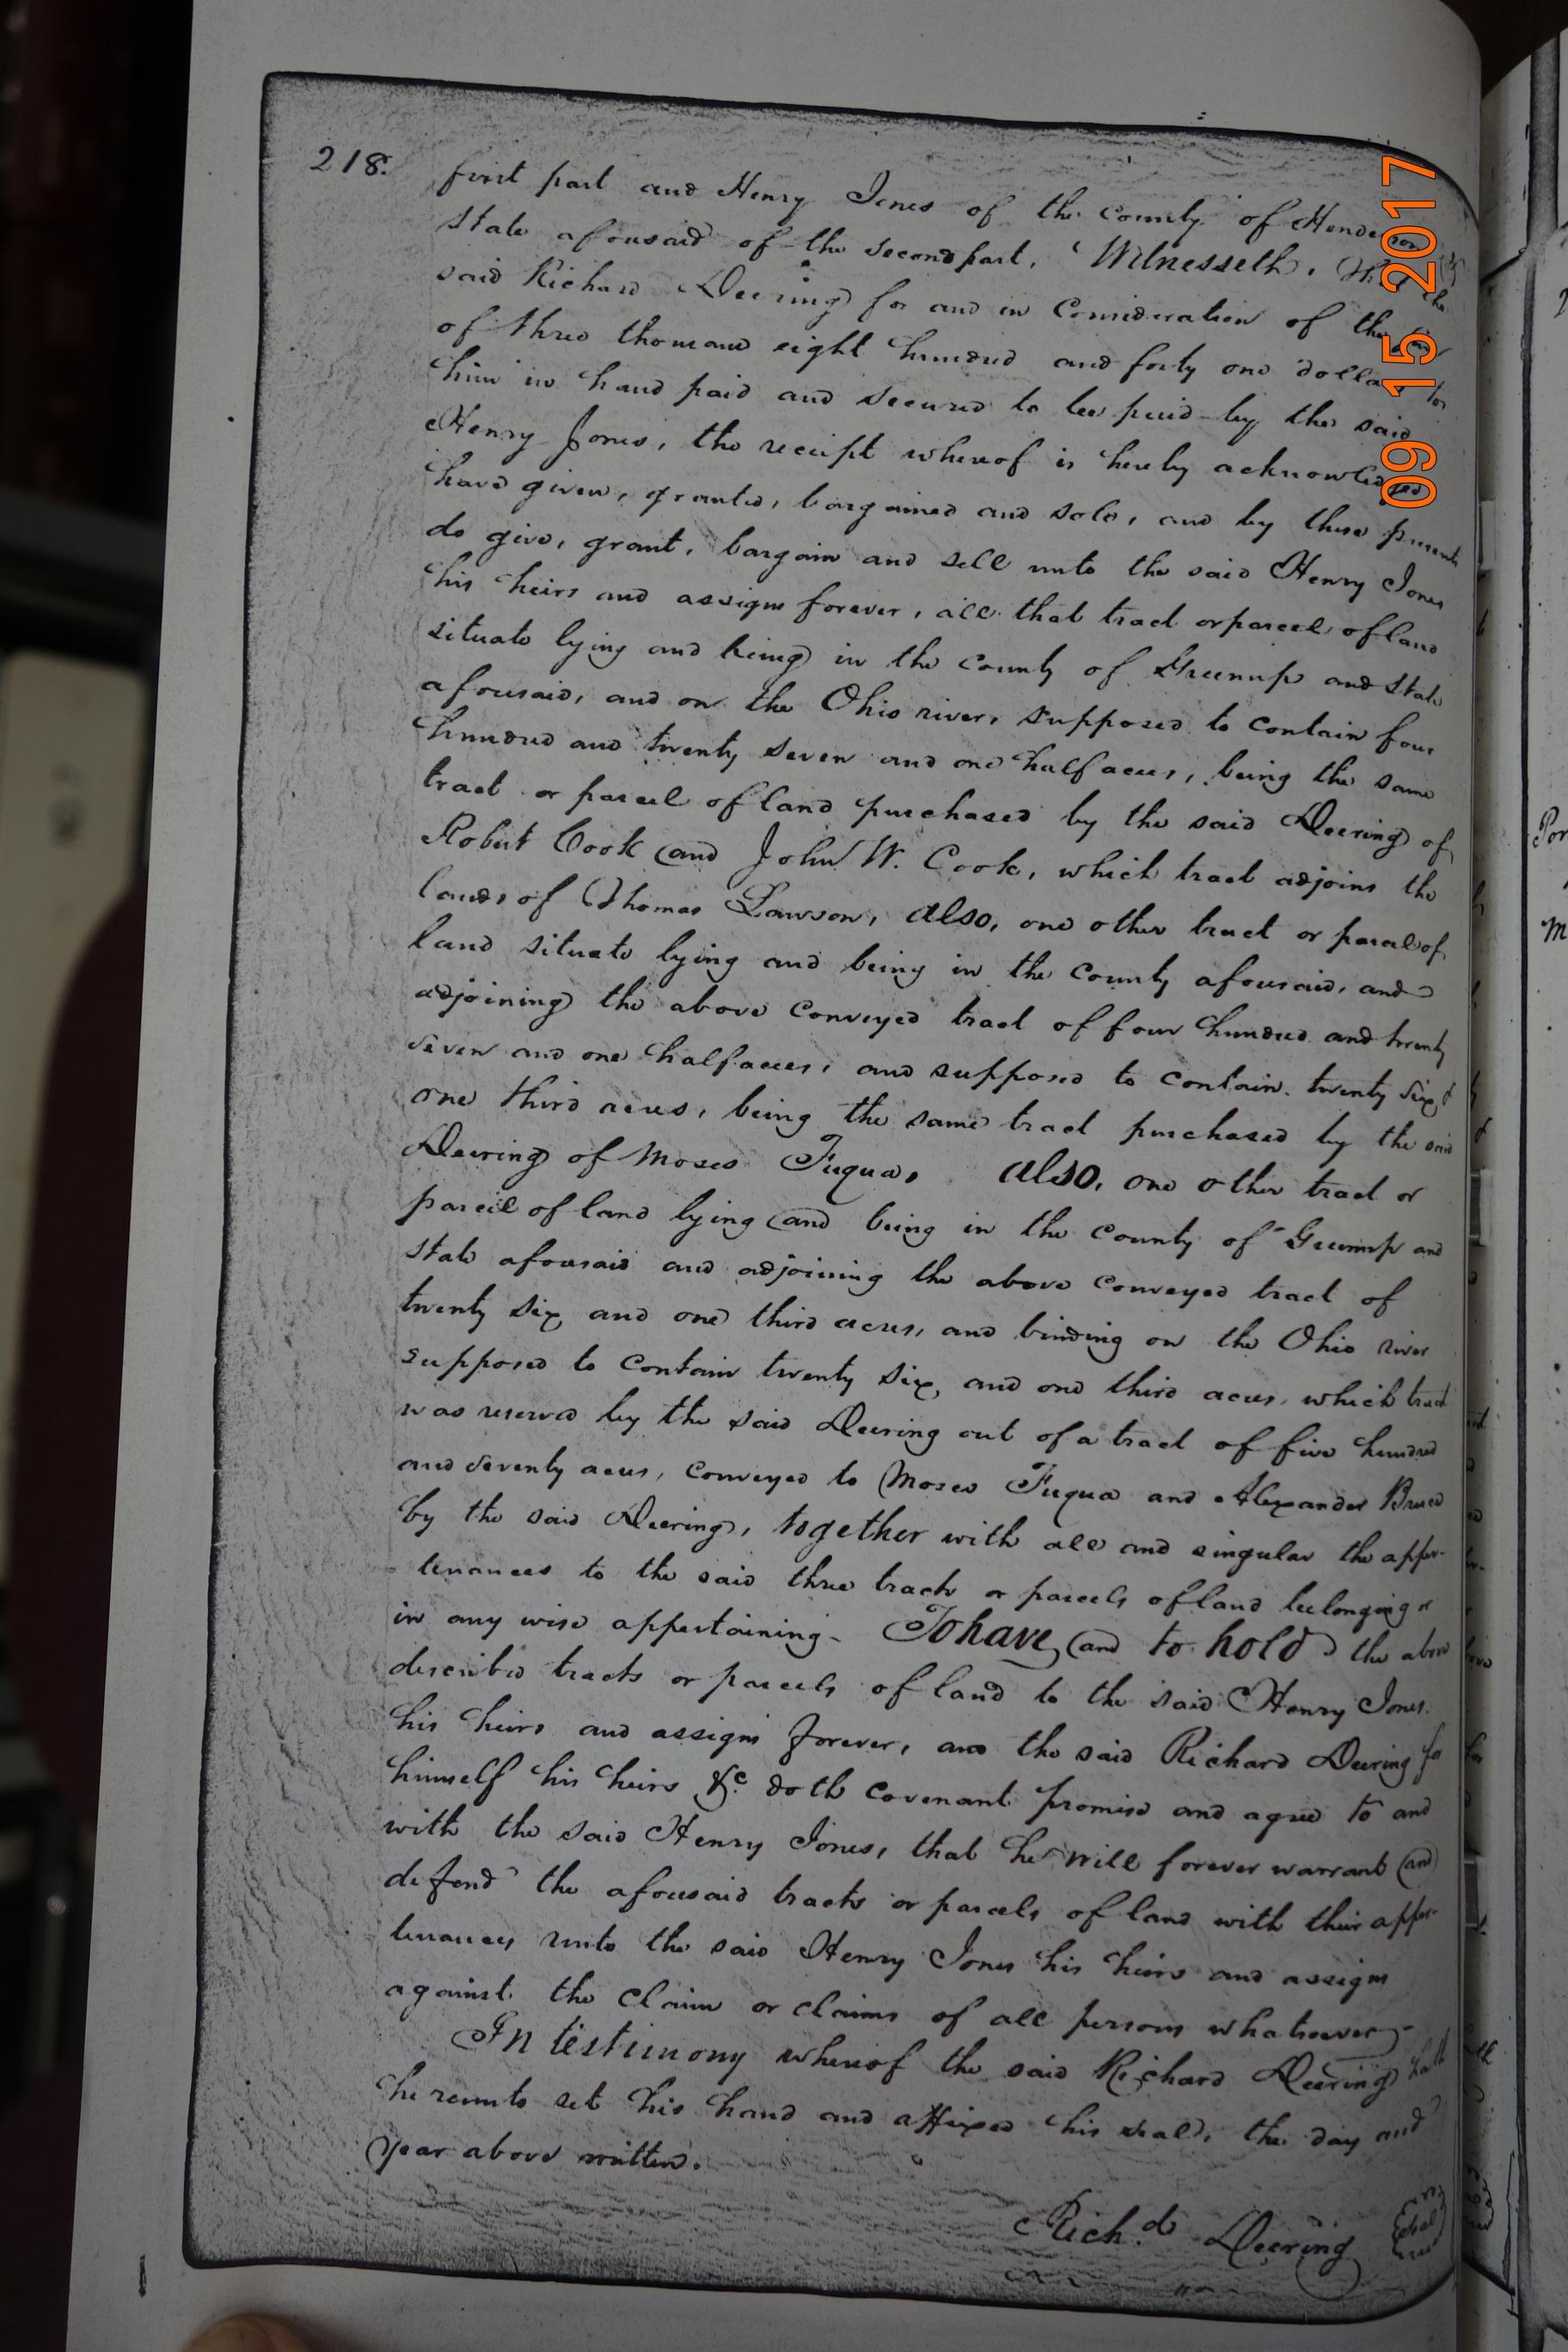 218.
first part and Henry Jones of the County of Henderson &
State aforesaid of the second part, Witnesseth, That the
said Richard Deering for and in Consideration of the sum
of three thousand eight hundred and forty one dollars to
him in hand paid and secured to be paid by the said
Henry Jones, the receipt whereof is hereby acknowledged
have given, granted, bargained and sold, and by these presents
do give, grant, bargain and sell unto the said Henry Jones
his heirs and assigns forever, all that tract or parcel of land
situate lying and being in the County of Greenup and State
aforesaid, and on the Ohio river, supposed to contain four
hundred and twenty seven and one half acres, being the same
tract or parcel of land purchased by the said Deering of
Robert Cook and John W. Cook, which tract adjoins the
lands of Thomas Lawson, also, one other tract or parcel of
land situate lying and being in the County aforesaid, and
adjoining the above conveyed tract of four hundred and twenty
seven and one half acres, and supposed to contain twenty six &
one third acres, being the same tract purchased by the said
Deering of Moses Fuqua, also, one other tract or
parcel of land lying and being in the County of Greenup and
State aforesaid and adjoining the above conveyed tract of
twenty six and one third acres, and binding on the Ohio river
supposed to contain twenty six, and one third acres, which tract
was reserved by the said Deering out of a tract of five hundred
and seventy acres, conveyed to Moses Fuqua and Alexander Bruce
by the said Deering, together with all and singular the appur-
tenances to the said three tracts or parcels of land belonging or
in any wise appertaining. To have and to hold the above
described tracts or parcels of land to the said Henry Jones
his heirs and assigns forever, and the said Richard Deering for
himself his heirs &c. doth covenant promise and agree to and
with the said Henry Jones, that he will forever warrant and
defend the aforesaid tracts or parcels of land with their appur-
tenances unto the said Henry Jones his heirs and assigns
against the claim or claims of all persons whatsoever
In testimony whereof the said Richard Deering hath
hereunto set his hand and affixed his seal, the day and
year above written.
Rich.d Deering Seal
09 15 2017